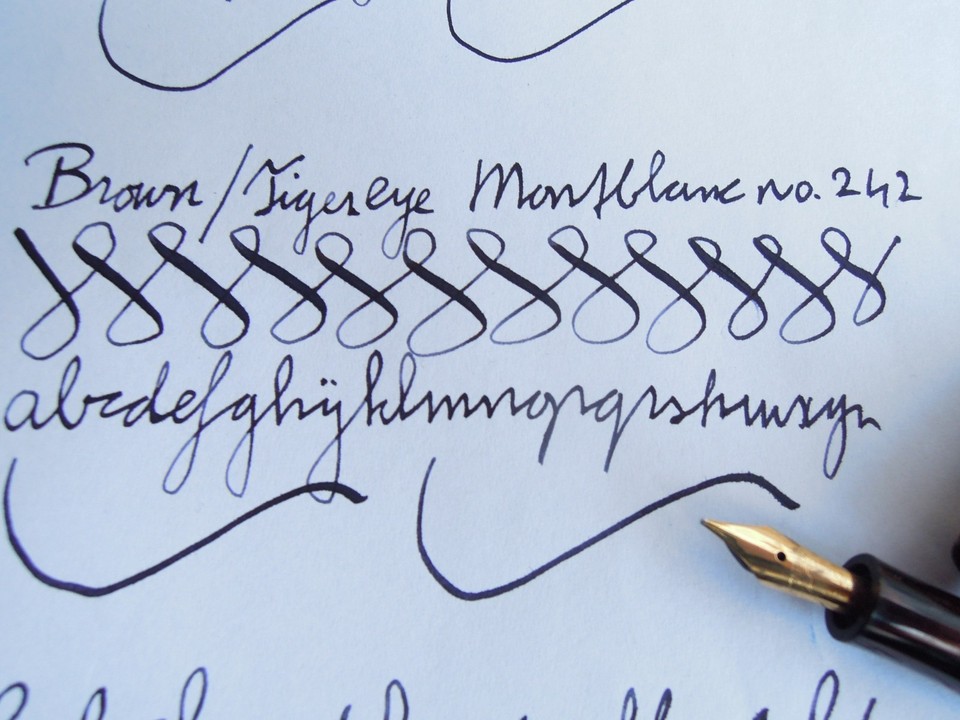 Brown/Tigereye Montblanc no. 242
abcdefghijklmnopqrstuwxyz